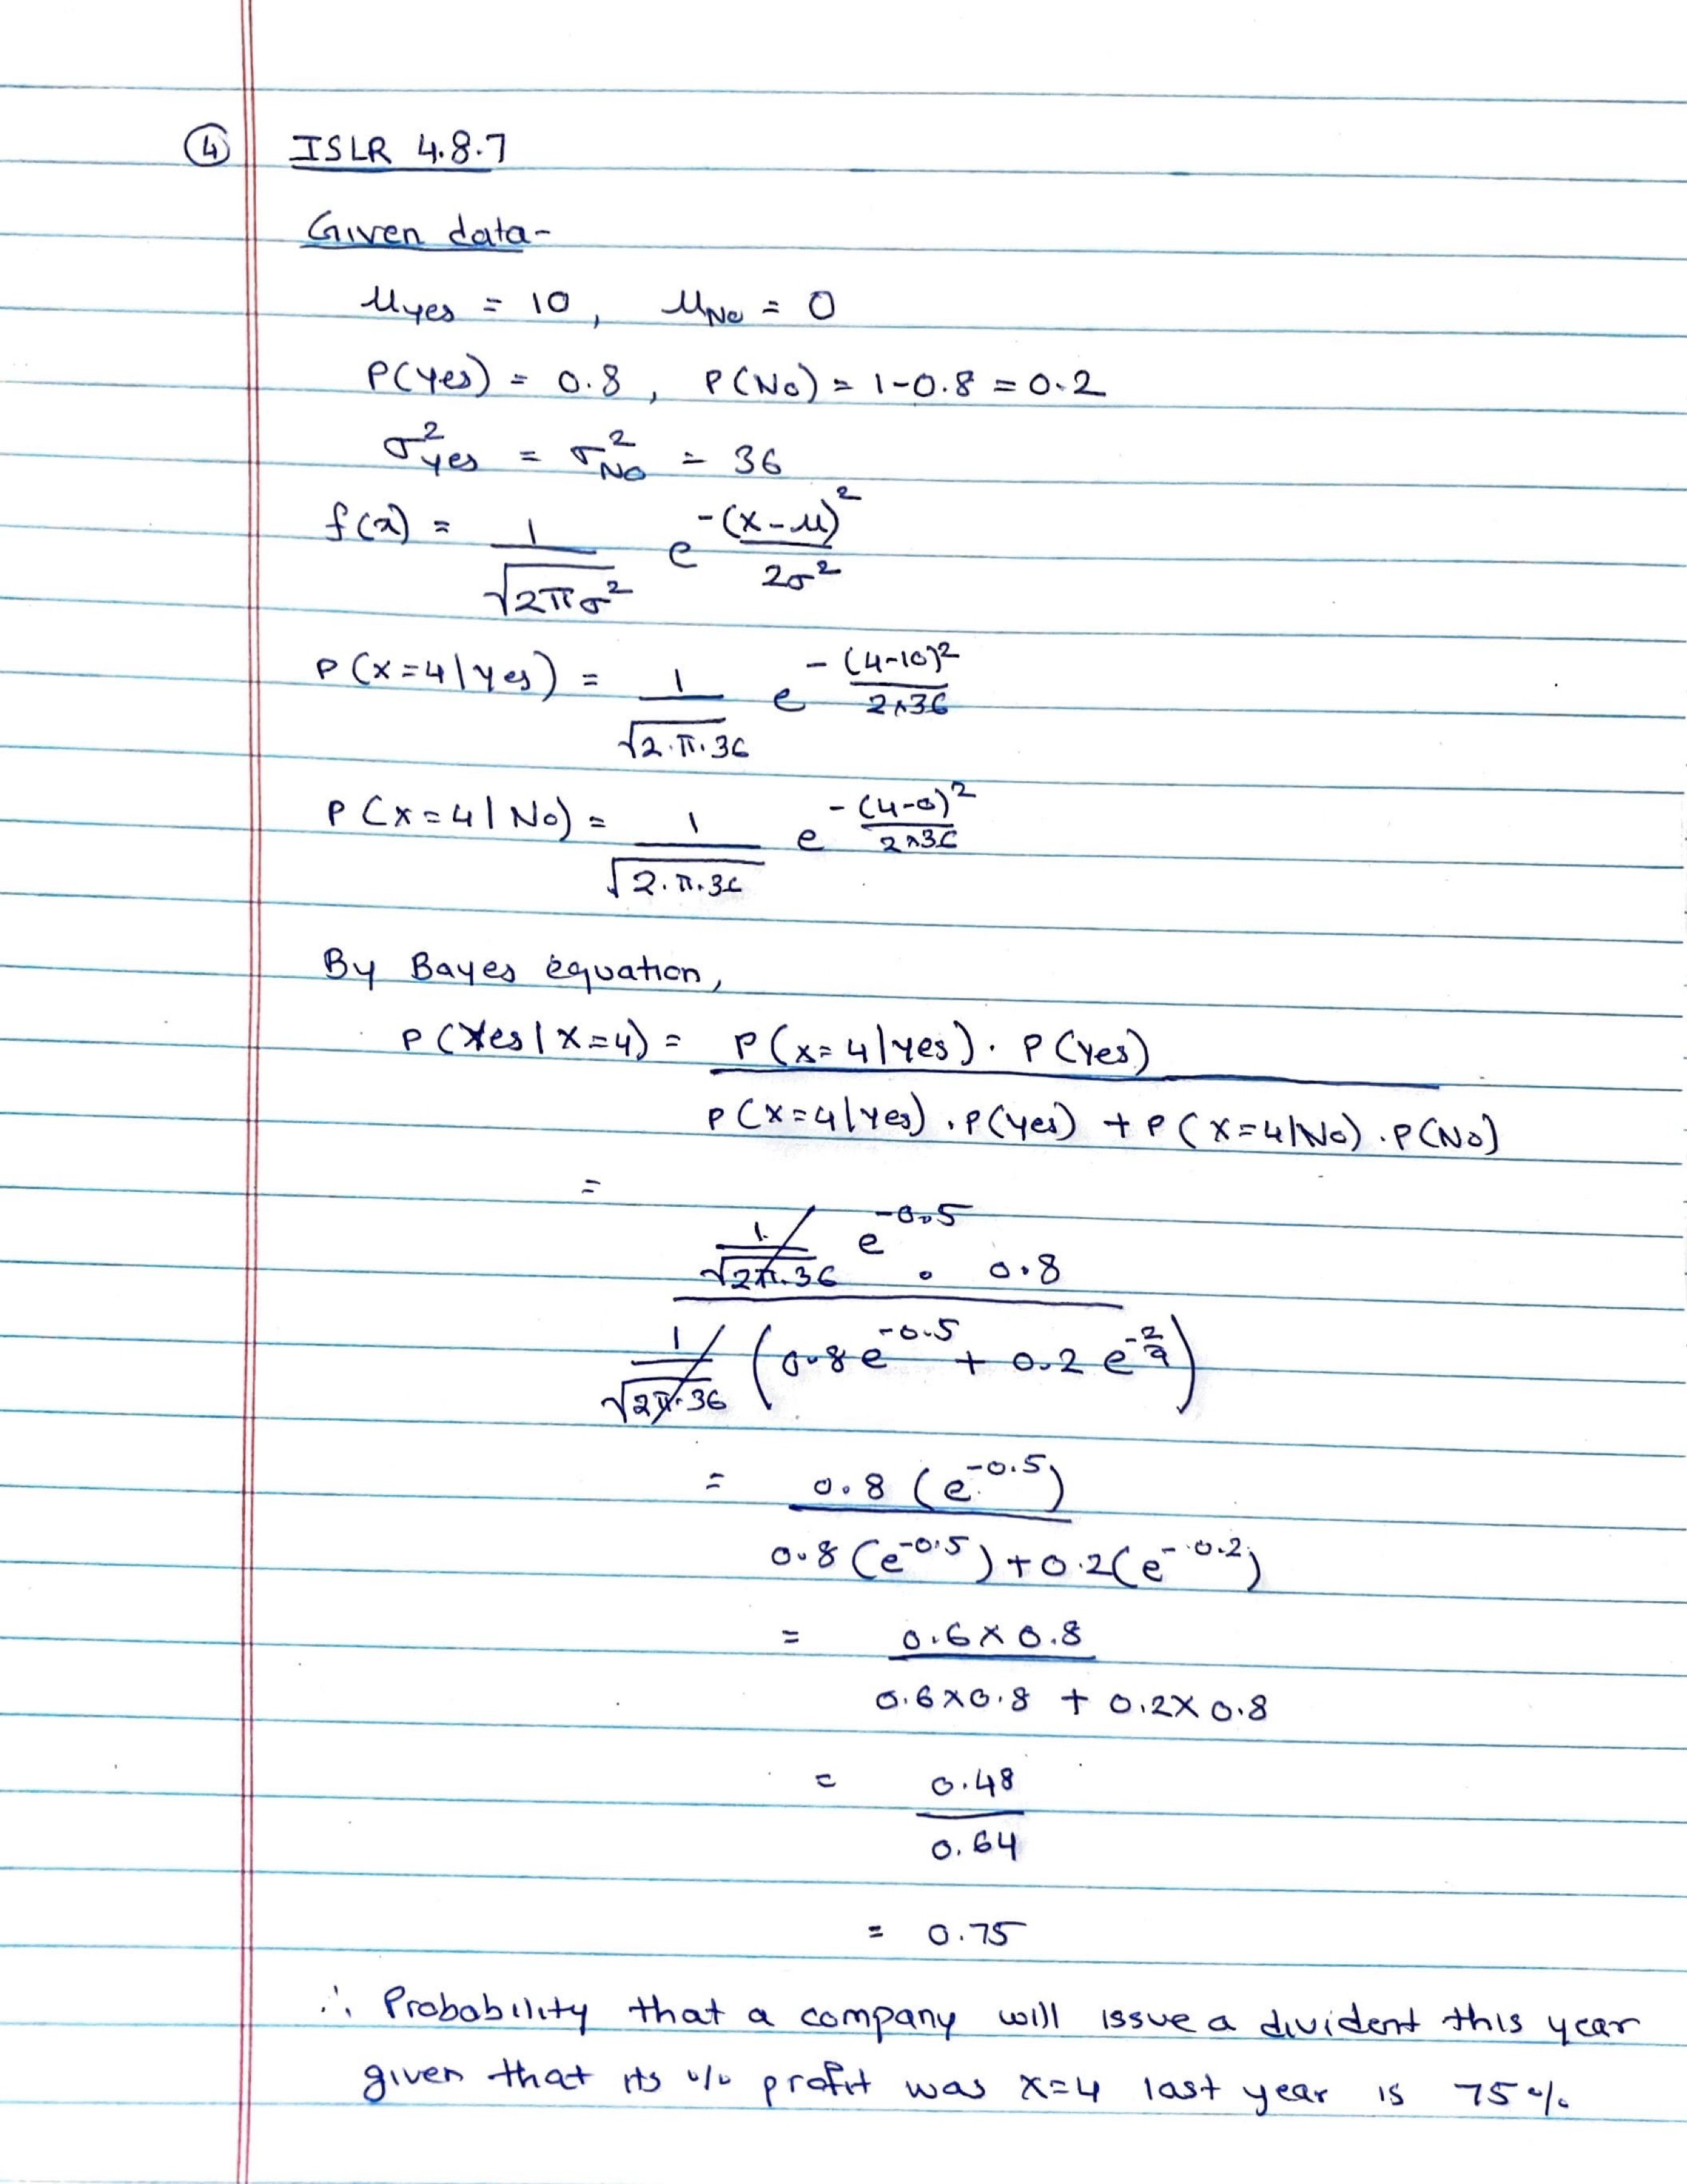 ④ ISLR 4.8.7
Given data-
μyes = 10, μNo = 0
P(Yes) = 0.8, P(No) = 1-0.8 = 0.2
σ²yes = σ²No = 36
f(x) = 1/√(2πσ²) e^(-(x-μ)²/2σ²)
P(X=4|Yes) = 1/√(2.π.36) e^(-(4-10)²/2×36)
P(X=4|No) = 1/√(2.π.36) e^(-(4-0)²/2×36)
By Bayes equation,
P(Yes|X=4) = P(X=4|Yes). P(Yes)
P(X=4|Yes).P(Yes) + P(X=4|No).P(No)
=
1/√(2π.36) e^(-0.5) . 0.8
1/√(2π.36) (0.8e^(-0.5) + 0.2 e^(-2/9))
= 0.8 (e^(-0.5))
0.8 (e^(-0.5)) + 0.2(e^(-0.2))
= 0.6 × 0.8
0.6×0.8 + 0.2×0.8
= 0.48
0.64
= 0.75
∴ Probability that a company will issue a divident this year
given that its % profit was x=4 last year is 75%